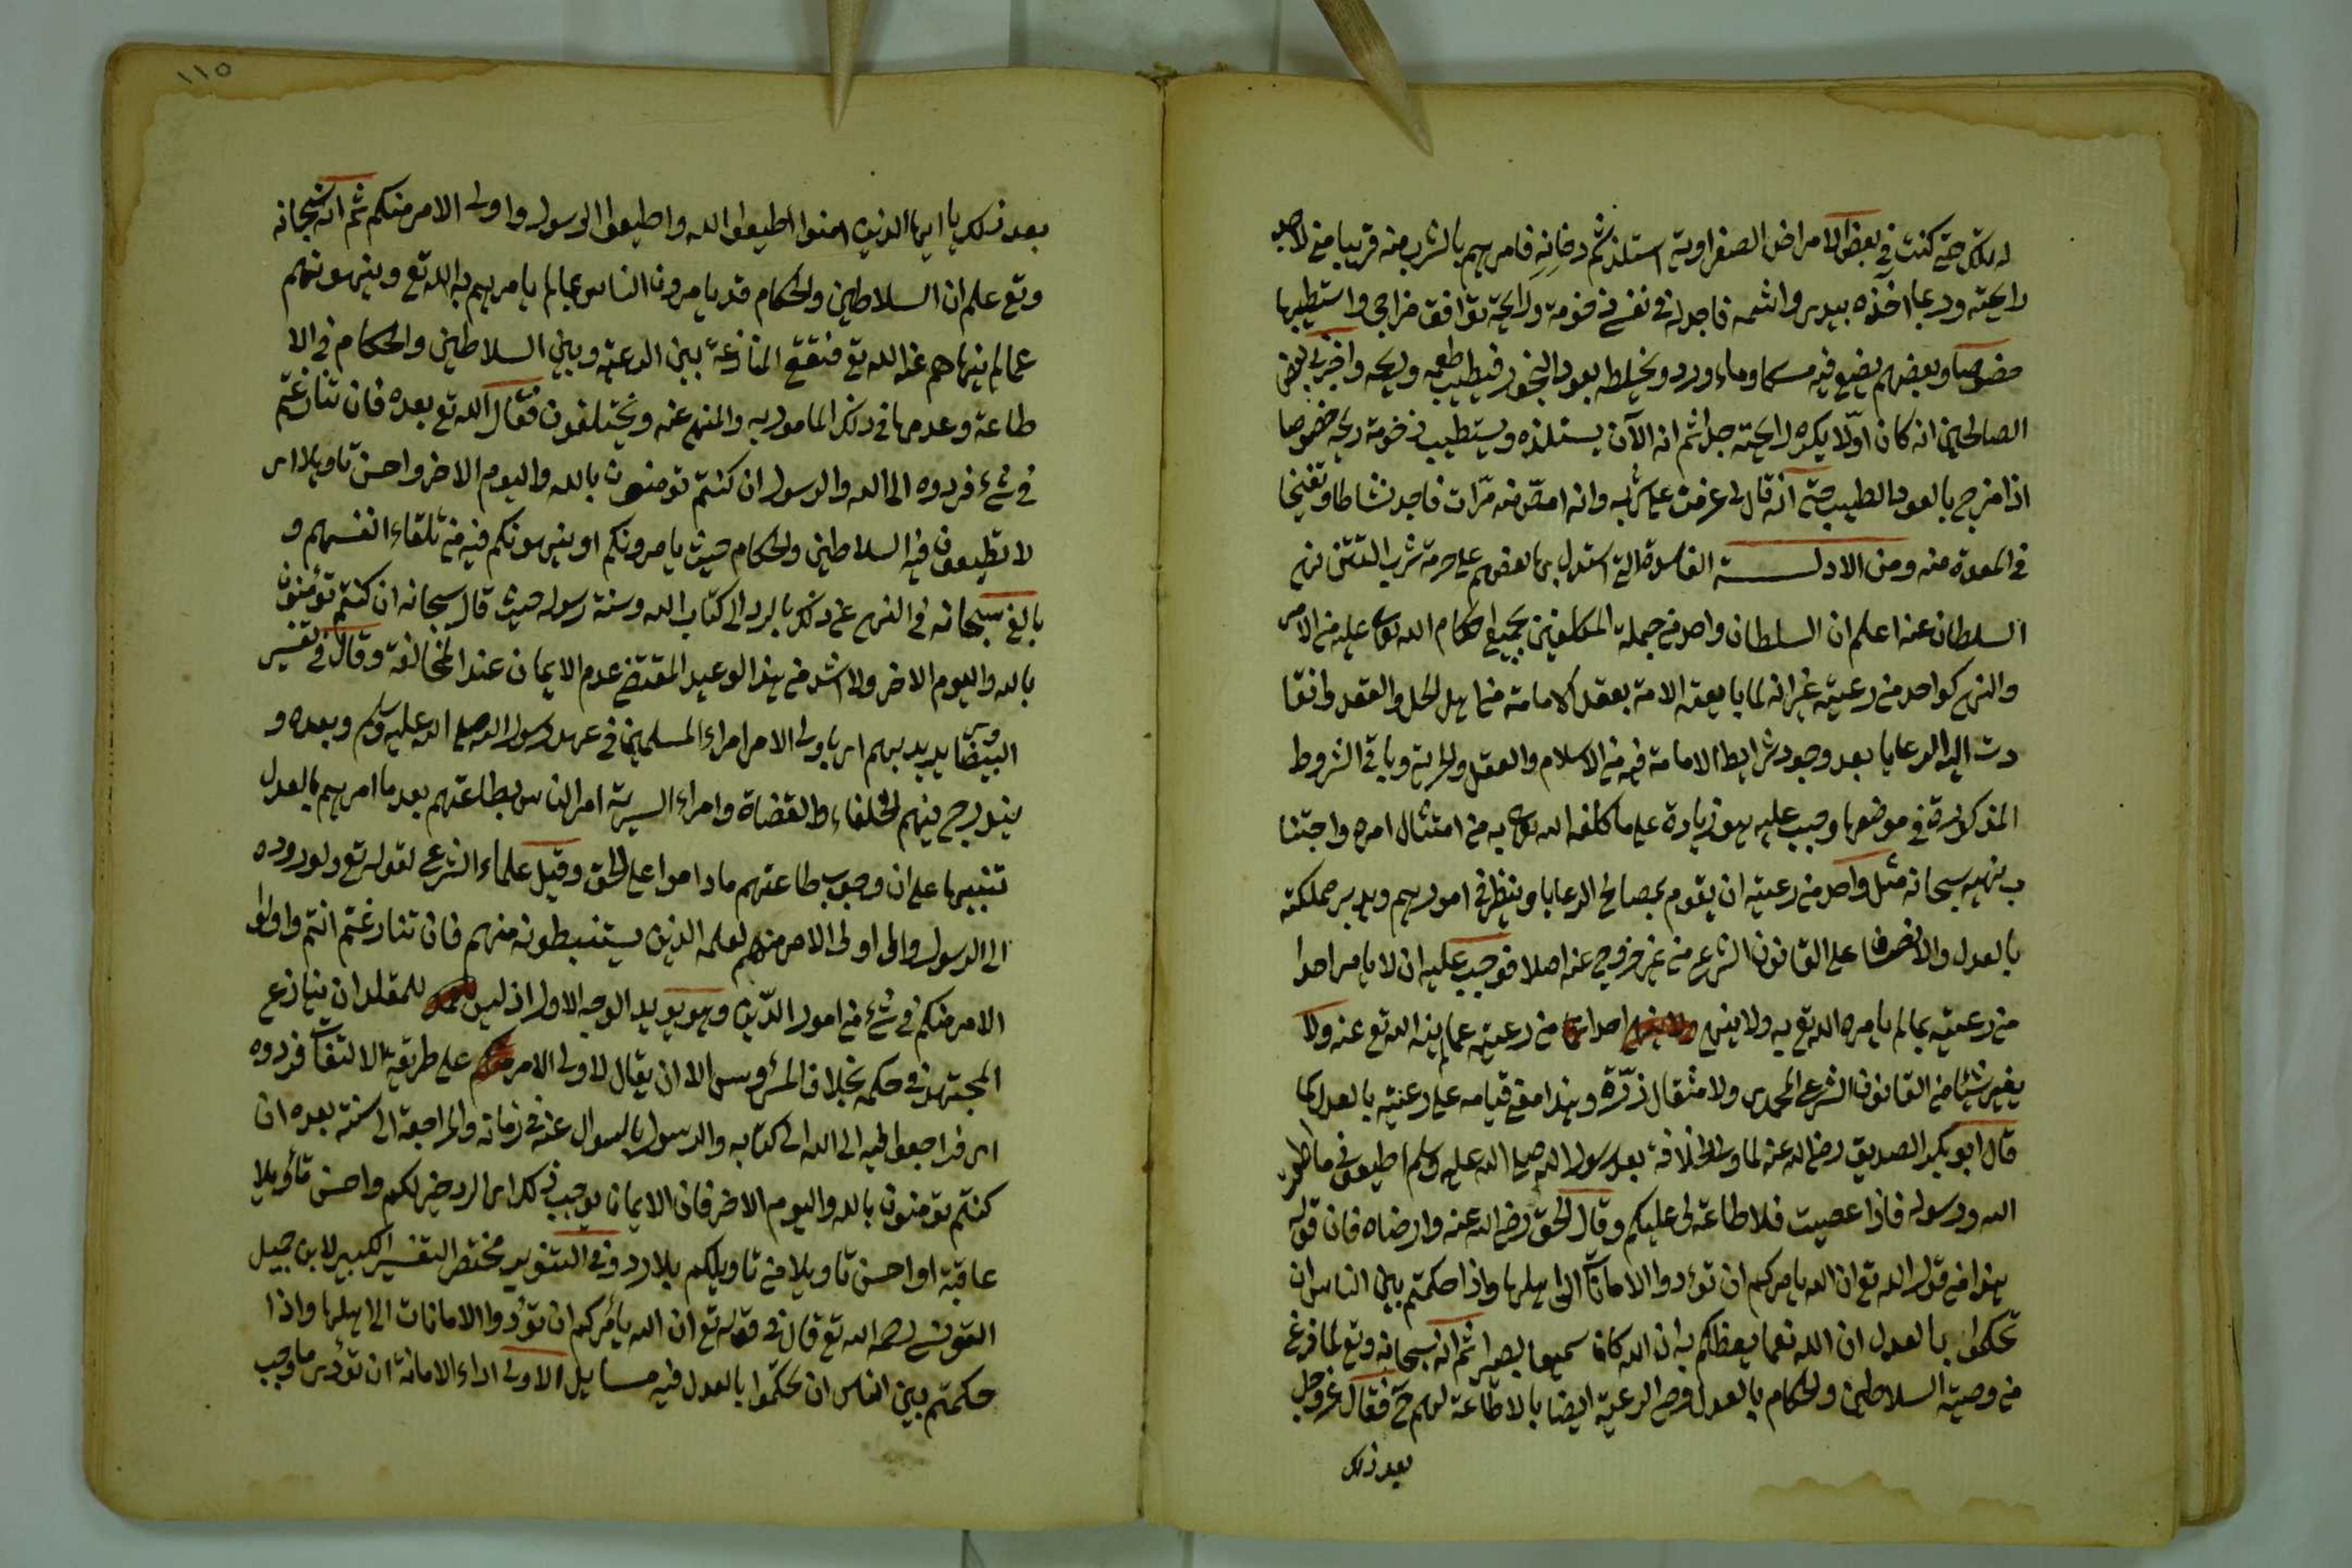 له بكل حتى كنت في بعض الامراض الصفراوية استلذ شم دخانه فامرهم بالشرب منه قريبا مني لاجل
رايحته وربما اخذه بيدي واشمه فاجد له في نفسي زخومة ورايحة توافق مزاجي واستطيبها
خصوصا وبعضهم يضع فيه مسكا وماء ورد ويخلطه بعود البخور فيطيب طعمه وريحه واخبرني بعض
الصالحين انه كان اولا يكره رايحته جدا ثم انه الآن يستلذه ويستطيب زخومة ريحه خصوصا
اذا مزج بالعود الطيب حتى انه قال لي عزمت على شربه وانه امص منه مرات فاجد نشاطا وتفتيحا
في المعدة منه ومن الادلة الفاسدة التي استدل بها بعضهم على حرمة شرب التتن نهي
السلطان عنه اعلم ان السلطان واحد من جملة المكلفين بجميع احكام الله تعالى عليه من الامر
والنهي كواحد من رعيته غير انه لما بايعته الامة بعقد الامامة من اهل الحل والعقد وانقا
دت اليه الرعايا بعد وجود شرايط الامامة فيه من الاسلام والعقل والحرية وباقي الشروط
المذكورة في موضعها وجب عليه هو زيادة على ما كلفه الله تعالى به من امتثال امره واجتنا
ب نهيه سبحانه مثل واحد من رعيته ان يقوم بمصالح الرعايا وينظر في امورهم ويدبر مملكته
بالعدل والانصاف على القانون الشرعي من غير خروج عنه اصلا فوجب عليه ان لا يامر احدا
من رعيته بما لم يامره الله تع به ولا ينهى احدا من رعيته عما لم ينه الله تع عنه ولا
يغير شيئا من القانون الشرعي المحمدي ولا مثقال ذرة وهذا معنى قيامه على رعيته بالعدل كما
قال ابو بكر الصديق رضي الله عنه لما ولي الخلافة بعد رسول الله صلى الله عليه وسلم اطيعوني ما اطعت
الله ورسوله فاذا عصيت فلا طاعة لي عليكم وقال الحق رضي الله عنه وارضاه فان قوله
هذا من قول الله تع ان الله يامركم ان تؤدوا الامانات الى اهلها واذا حكمتم بين الناس ان
تحكموا بالعدل ان الله نعما يعظكم به ان الله كان سميعا بصيرا ثم انه سبحانه وتع لما فرغ
من وصية السلاطين والحكام بالعدل وصى الرعية ايضا بالاطاعة لهم فقال عز وجل
بعد ذلك
١١٥
بعد ذلك يا ايها الذين امنوا اطيعوا الله واطيعوا الرسول واولى الامر منكم ثم انه سبحانه
وتع علم ان السلاطين والحكام قد يامرون الناس بما لم يامرهم به الله تع وينهونهم
عما لم ينهاهم عنه الله تع فتقع المنازعة بين الرعية وبين السلاطين والحكام في الا
طاعة وعدمها في ذلك المامور به والمنهي عنه ويختلفون فقال الله تع بعده فان تنازعتم
في شيء فردوه الى الله والرسول ان كنتم تومنون بالله واليوم الاخر واحسن تاويلا اى
لا تطيعون فيه السلاطين والحكام حيث يامرونكم او ينهونكم فيه من تلقاء انفسهم و
بالغ سبحانه في النهي عن ذلك بالرد الى كتاب الله وسنة رسوله حيث قال سبحانه ان كنتم تؤمنون
بالله واليوم الاخر ولا اشد من هذا الوعيد المقتضي عدم الايمان عند المخالفة وقال في تفسير
البيضاوي يريد بهم اى باولى الامر امراء المسلمين في عهد رسول الله صلى الله عليه وسلم وبعده و
يندرج فيهم الخلفاء والقضاة وامراء السرية امر الناس بطاعتهم بعد ما امرهم بالعدل
تنبيها على ان وجوب طاعتهم ما داموا على الحق وقيل علماء الشرع لقوله تع ولو ردوه
الى الرسول والى اولى الامر منهم لعلمه الذين يستنبطونه منهم فان تنازعتم انتم واولوا
الامر منكم في شيء من امور الدين وهو يويد الوجه الاول اذ ليس للمقلد ان ينازع
المجتهد في حكمه بخلاف المرؤوس الا ان يقال لاولى الامر على طريقة الالتفات فردوه
اى فراجعوا فيه الى الله الى كتابه والرسول بالسوال عنه في زمانه والمراجعة الى سنته بعده ان
كنتم تومنون بالله واليوم الاخر فان الايمان يوجب ذلك اى الرد خير لكم واحسن تأويلا
عاقبة او احسن تاويلا من تاويلكم بلا رد وفي التنوير مختصر التفسير الكبير لابن جبيل
التونسي رحمه الله تع قال في قوله تع ان الله يأمركم ان تؤدوا الامانات الى اهلها واذا
حكمتم بين الناس ان تحكموا بالعدل فيه مسايل الاولى اداء الامانة ان تؤدى ما وجب